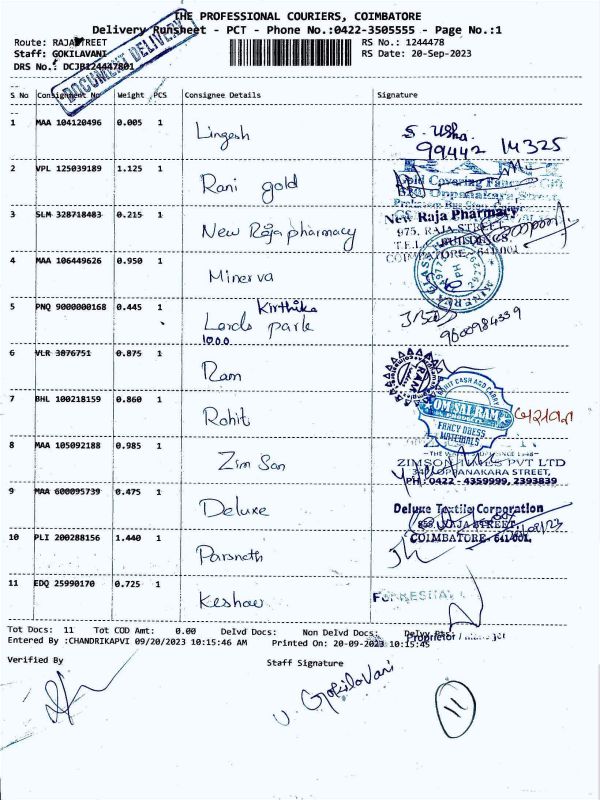 THE PROFESSIONAL COURIERS, COIMBATORE
Delivery Runsheet - PCT - Phone No.:0422-3505555 - Page No.:1
Route: RAJA STREET RS No.: 1244478
Staff: GOKILAVANI RS Date: 20-Sep-2023
DRS No.: DCJB124447801
DOCUMENT DELIVERY
S No Consignment No Weight PCS Consignee Details Signature
1 MAA 104120496 0.005 1 Lingesh S. Usha.
99442 14325
2 VPL 125039189 1.125 1 Rani gold
Gold Covering Fancy
3 SLM 328718483 0.215 1 New Raja pharmacy New Raja Pharmacy
975, RAJA STREET
T.E.L. BUILDINGS,
COIMBATORE - 641 001
4 MAA 106449626 0.950 1 Minerva
5 PNQ 9000000168 0.445 1 Kirthika
Lords park
1000
9600984339
6 VLR 3076751 0.875 1 Ram
RAM
7 BHL 100218159 0.860 1 Rohit
ROHIT CASH AND CARRY
OM SAI RAM
FANCY DRESS
MATERIALS
8 MAA 105092188 0.985 1 Zim San
PVT LTD
OPPANAKARA STREET,
PH: 0422 - 4359999, 2393839
9 MAA 600095739 0.475 1 Deluxe Deluxe Textile Corporation
RAJA STREET,
COIMBATORE - 641 001.
10 PLI 200288156 1.440 1
11 EDQ 25990170 0.725 1 Keshav
Tot Docs: 11 Tot COD Amt: 0.00 Delvd Docs: Non Delvd Docs:
Proprietor / Manager
Entered By :CHANDRIKAPVI 09/20/2023 10:15:46 AM Printed On: 20-09-2023 10:15:45
Verified By Staff Signature
V. Gokilavani
11